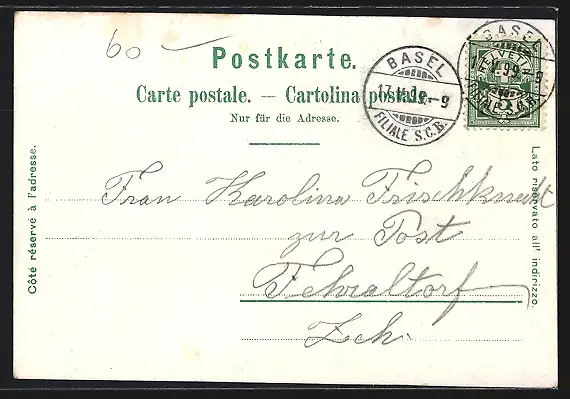 60
Postkarte.
Carte postale. — Cartolina postale.
Nur für die Adresse.
BASEL
17.V.99.–9
FILIALE S.C.B.
BASEL
HELVETIA
17.V.99.–9
FILIALE S.C.B.
Côté réservé à l'adresse.
Lato riservato all' indirizzo.
Frau Karolina Frischknecht
zur Post
Fehraltorf
Zch.